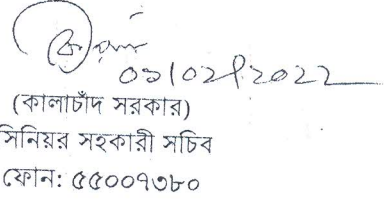 ০১/০২/২০২২
(কালাচাঁদ সরকার)
সিনিয়র সহকারী সচিব
ফোন: ৫৫০০৭৩৮০